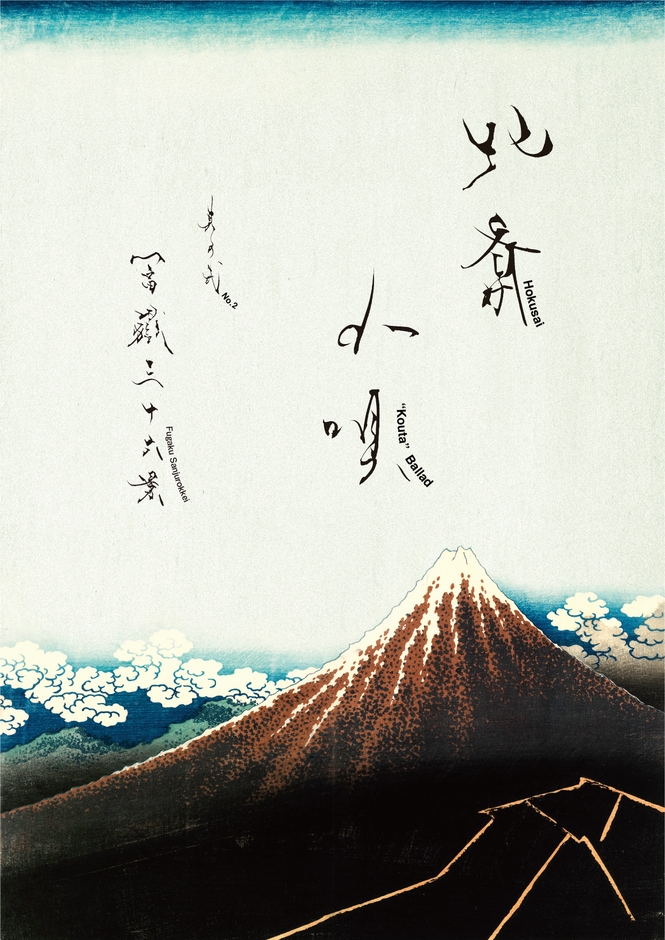 北斎
Hokusai
小唄
“Kouta” Ballad
其の弐
No.2
富嶽三十六景
Fugaku Sanjurokkei